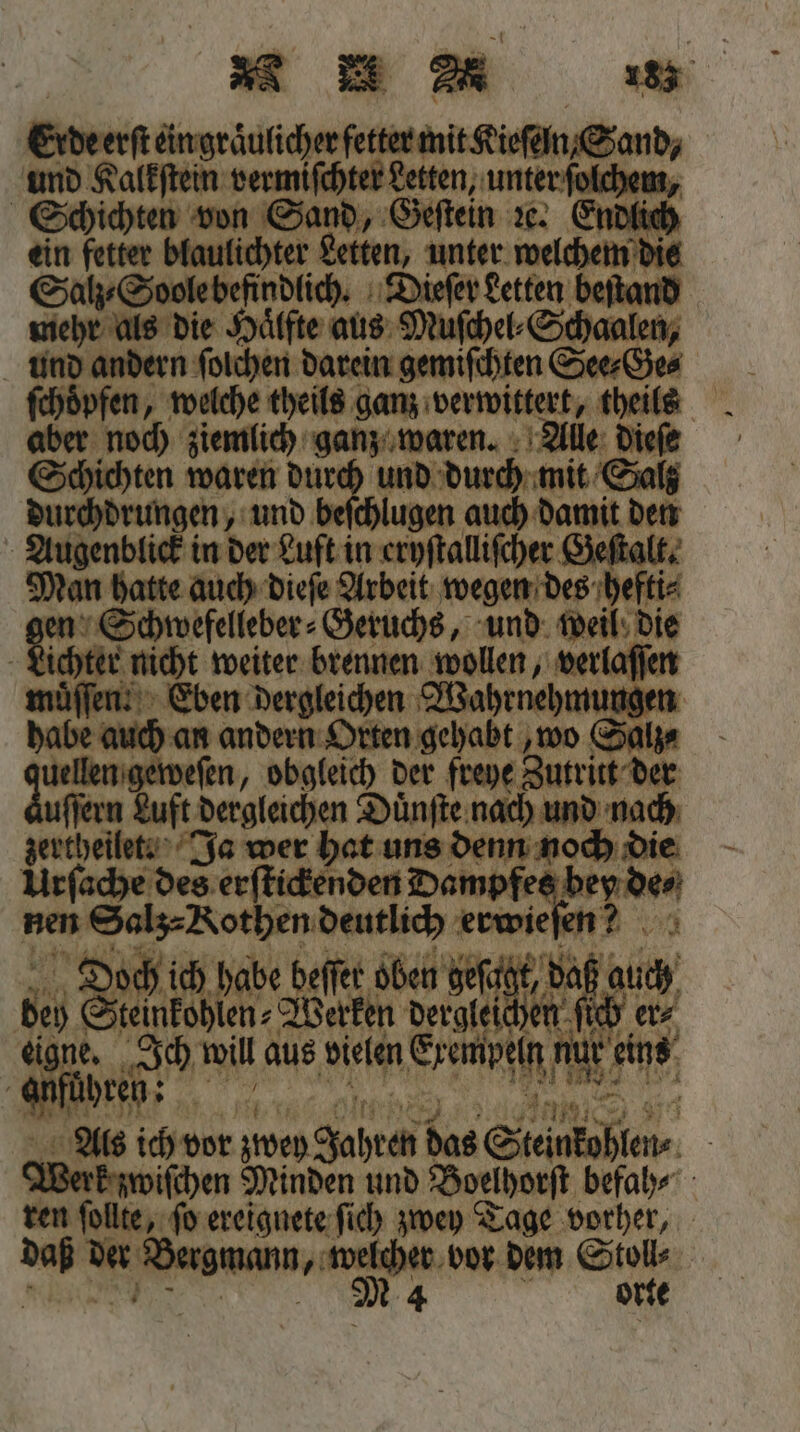 183
Erde erſt ein graͤulicher fetter mit Kieſeln, Sand,
und Kalkſtein vermiſchter Letten, unter ſolchem,
Schichten von Sand, Geſtein ꝛc. Endlich
ein fetter blaulichter Letten, unter welchem die
Salz⸗Soole befindlich. Dieſer Letten beſtand
mehr als die Haͤlfte aus Muſchel⸗Schaalen,
und andern ſolchen darein gemiſchten See⸗Ge⸗
ſchoͤpfen, welche theils ganz verwittert, theils
aber noch ziemlich ganz waren. Alle dieſe
Schichten waren durch und durch mit Salz
durchdrungen, und beſchlugen auch damit den
Augenblick in der Luft in cryſtalliſcher Geſtalt.
Man hatte auch dieſe Arbeit wegen des hefti⸗
gen Schwefelleber⸗Geruchs, und weil die
Lichter nicht weiter brennen wollen, verlaſſen
muͤſſen. Eben dergleichen Wahrnehmungen
habe auch an andern Orten gehabt, wo Salz⸗
quellen geweſen, obgleich der freye Zutritt der
aͤuſſern Luft dergleichen Duͤnſte nach und nach
zertheilet. Ja wer hat uns denn noch die
Urſache des erſtickenden Dampfes bey de⸗
nen Salz⸗Kothen deutlich erwieſen?
Doch ich habe beſſer oben geſagt, daß auch
bey Steinkohlen⸗Werken dergleichen ſich er⸗
eigne. Ich will aus vielen Exempeln nur eins
anfuͤhren:
Als ich vor zwey Jahren das Steinkohlen⸗
Werk zwiſchen Minden und Boelhorſt befah⸗
ren ſollte, ſo ereignete ſich zwey Tage vorher,
daß der Bergmann, welcher vor dem Stoll⸗
M 4 orte